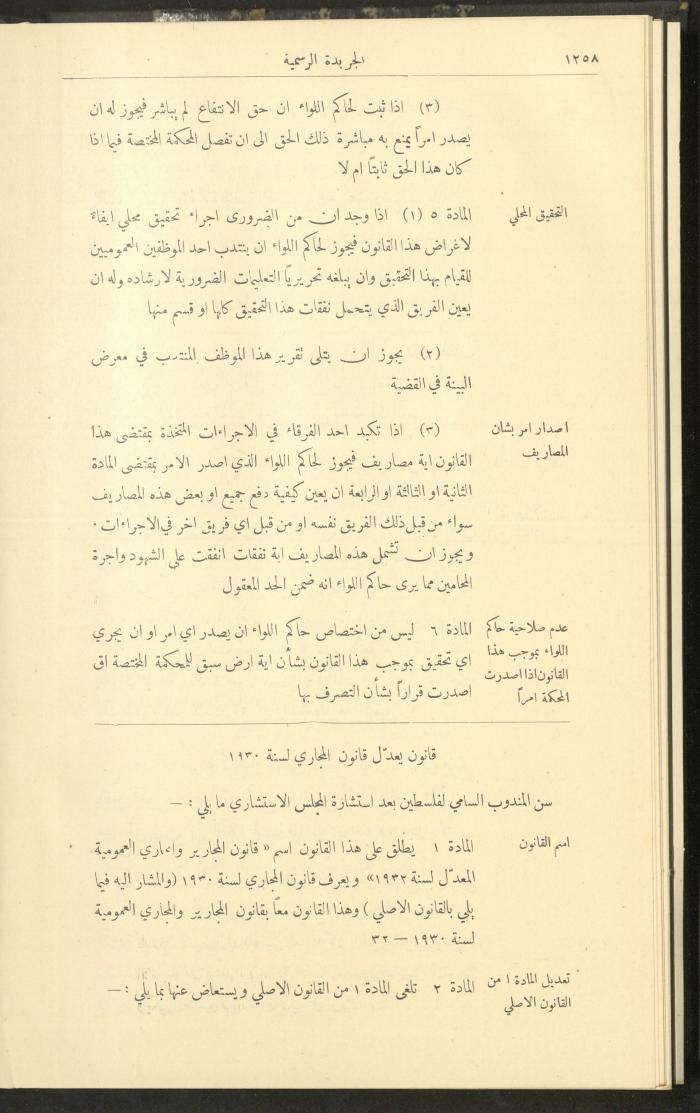 ١٢٥٨
الجريدة الرسمية
(٣) اذا ثبت لحاكم اللواء ان حق الانتفاع لم يباشر فيجوز له ان
يصدر امراً يمنع به مباشرة ذلك الحق الى ان تفصل المحكمة المختصة فيما اذا
كان هذا الحق ثابتًا ام لا
التحقيق المحلي
المادة ٥ (١) اذا وجد ان من الضروری اجراء تحقيق محلي ايفاءً
لاغراض هذا القانون فيجوز لحاكم اللواء ان ينتدب احد الموظفين العموميين
للقيام بهذا التحقيق وان يبلغه تحريريًا التعليمات الضرورية لارشاده وله ان
يعين الفريق الذي يتحمل نفقات هذا التحقيق كلها او قسم منها
(٢) يجوز ان يتلى تقرير هذا الموظف المنتدب في معرض
البينة في القضية
اصدار امر بشان
المصاريف
(٣) اذا تكبد احد الفرقاء في الاجراءات المتخذة بمقتضى هذا
القانون اية مصاريف فيجوز لحاكم اللواء الذي اصدر الامر بمقتضى المادة
الثانية او الثالثة او الرابعة ان يعين كيفية دفع جميع او بعض هذه المصاريف
سواء من قبل ذلك الفريق نفسه او من قبل اي فريق اخر في الاجراءات .
ويجوز ان تشمل هذه المصاريف اية نفقات انفقت على الشهود واجرة
المحامين مما يرى حاكم اللواء انه ضمن الحد المعقول
عدم صلاحية حاكم
اللواء بموجب هذا
القانون اذا اصدرت
المحكمة امراً
المادة ٦ ليس من اختصاص حاكم اللواء ان يصدر اي امر او ان يجري
اي تحقيق بموجب هذا القانون بشأن اية ارض سبق للمحكمة المختصة ان
اصدرت قراراً بشأن التصرف بها
قانون يعدّل قانون المجاري لسنة ١٩٣٠
سن المندوب السامي لفلسطين بعد استشارة المجلس الاستشاري ما يلي : —
اسم القانون
المادة ١ يطلق على هذا القانون اسم « قانون المجارير والمجاري العمومية
المعدّل لسنة ١٩٣٢» ويعرف قانون المجاري لسنة ١٩٣٠ (والمشار اليه فيما
يلي بالقانون الاصلي) وهذا القانون معًا بقانون المجارير والمجاري العمومية
لسنة ١٩٣٠ — ٣٢
تعديل المادة ١ من
القانون الاصلي
المادة ٢ تلغى المادة ١ من القانون الاصلي ويستعاض عنها بما يلي : —